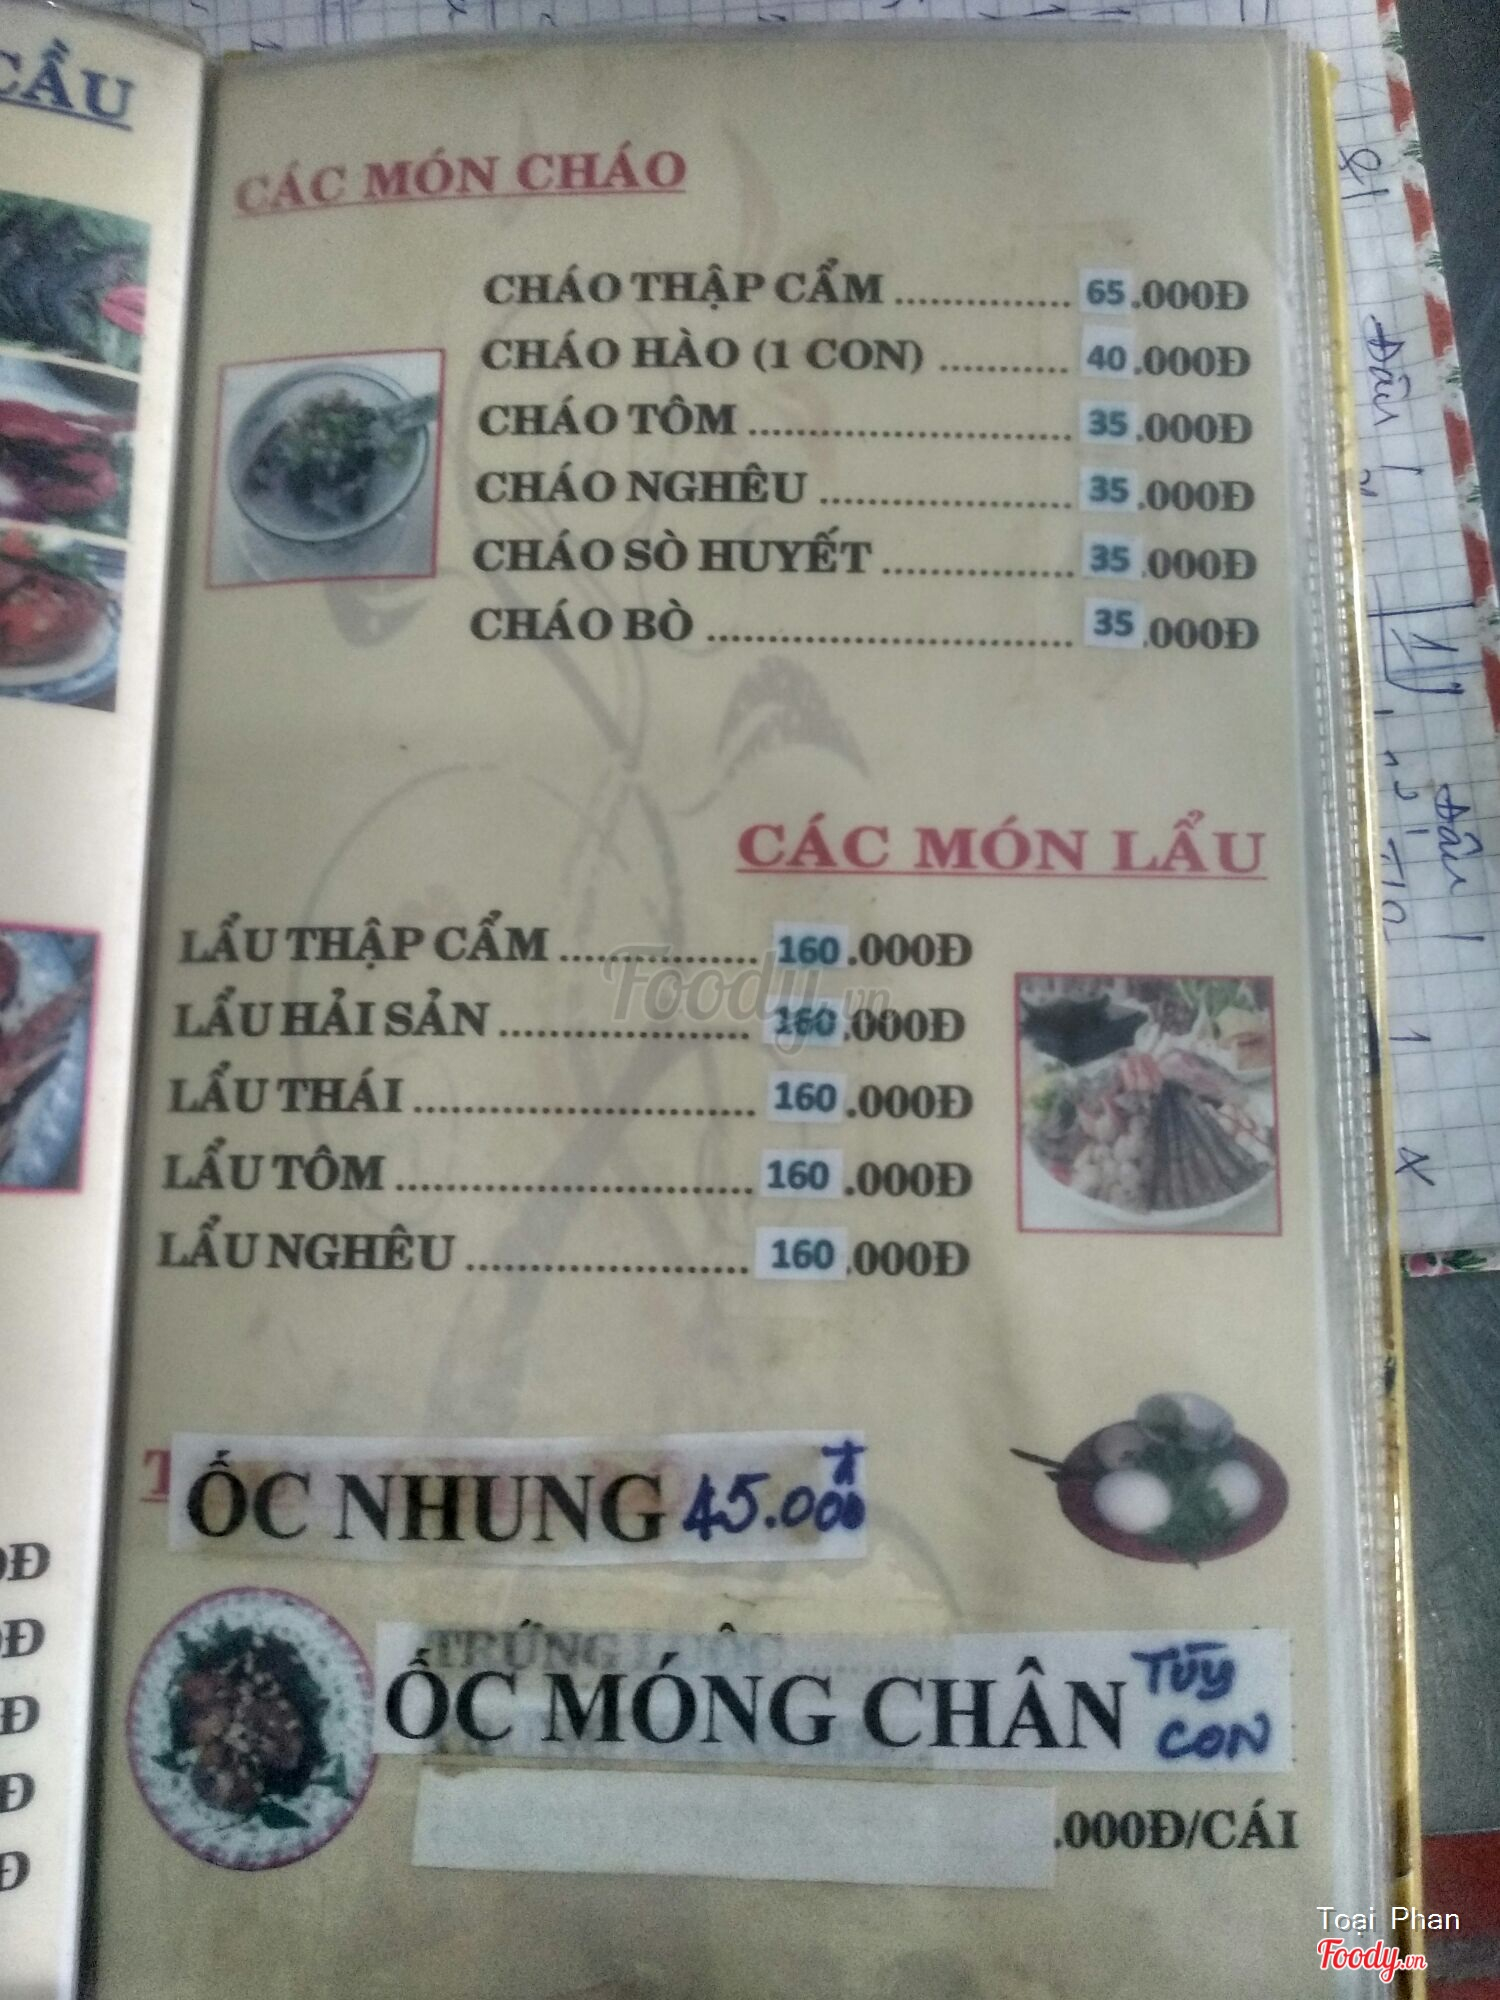 CẦU
CÁC MÓN CHÁO
CHÁO THẬP CẨM ............... 65.000Đ
CHÁO HÀO (1 CON) ........... 40.000Đ
CHÁO TÔM ........................... 35.000Đ
CHÁO NGHÊU ..................... 35.000Đ
CHÁO SÒ HUYẾT ................ 35.000Đ
CHÁO BÒ ............................... 35.000Đ
CÁC MÓN LẨU
LẨU THẬP CẨM ................. 160.000Đ
LẨU HẢI SẢN ..................... 160.000Đ
LẨU THÁI ............................. 160.000Đ
LẨU TÔM .............................. 160.000Đ
LẨU NGHÊU ........................ 160.000Đ
Foody.vn
ỐC NHUNG 45.000đ
TRỨNG LUỘC
ỐC MÓNG CHÂN TÙY CON
.000Đ/CÁI
Toại Phan
Foody.vn